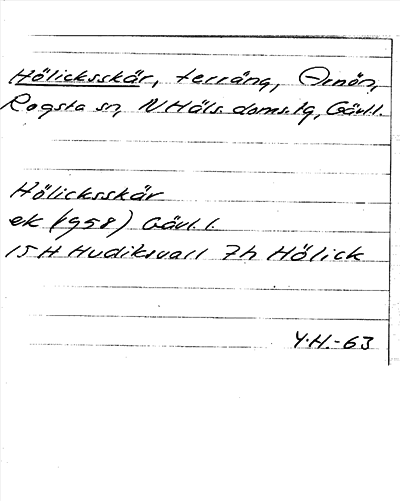 Hölicksskär, terräng, Arnön,
Rogsta sn, N.Häls. doms.lg, Gävl.l.
Hölicksskär
ek (1958) Gävl.l.
15 H Hudiksvall 7h Hölick
Y.H.-63